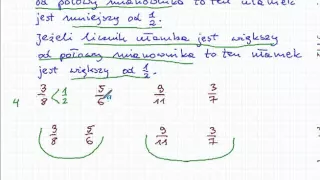 od połowy mianownika to ten ułamek
jest mniejszy od 1/2.
Jeżeli licznik ułamka jest większy
od połowy mianownika to ten ułamek
jest większy od 1/2.
3/8 < 1/2 5/6 9/11 3/7
4
3/8 5/6 9/11 3/7